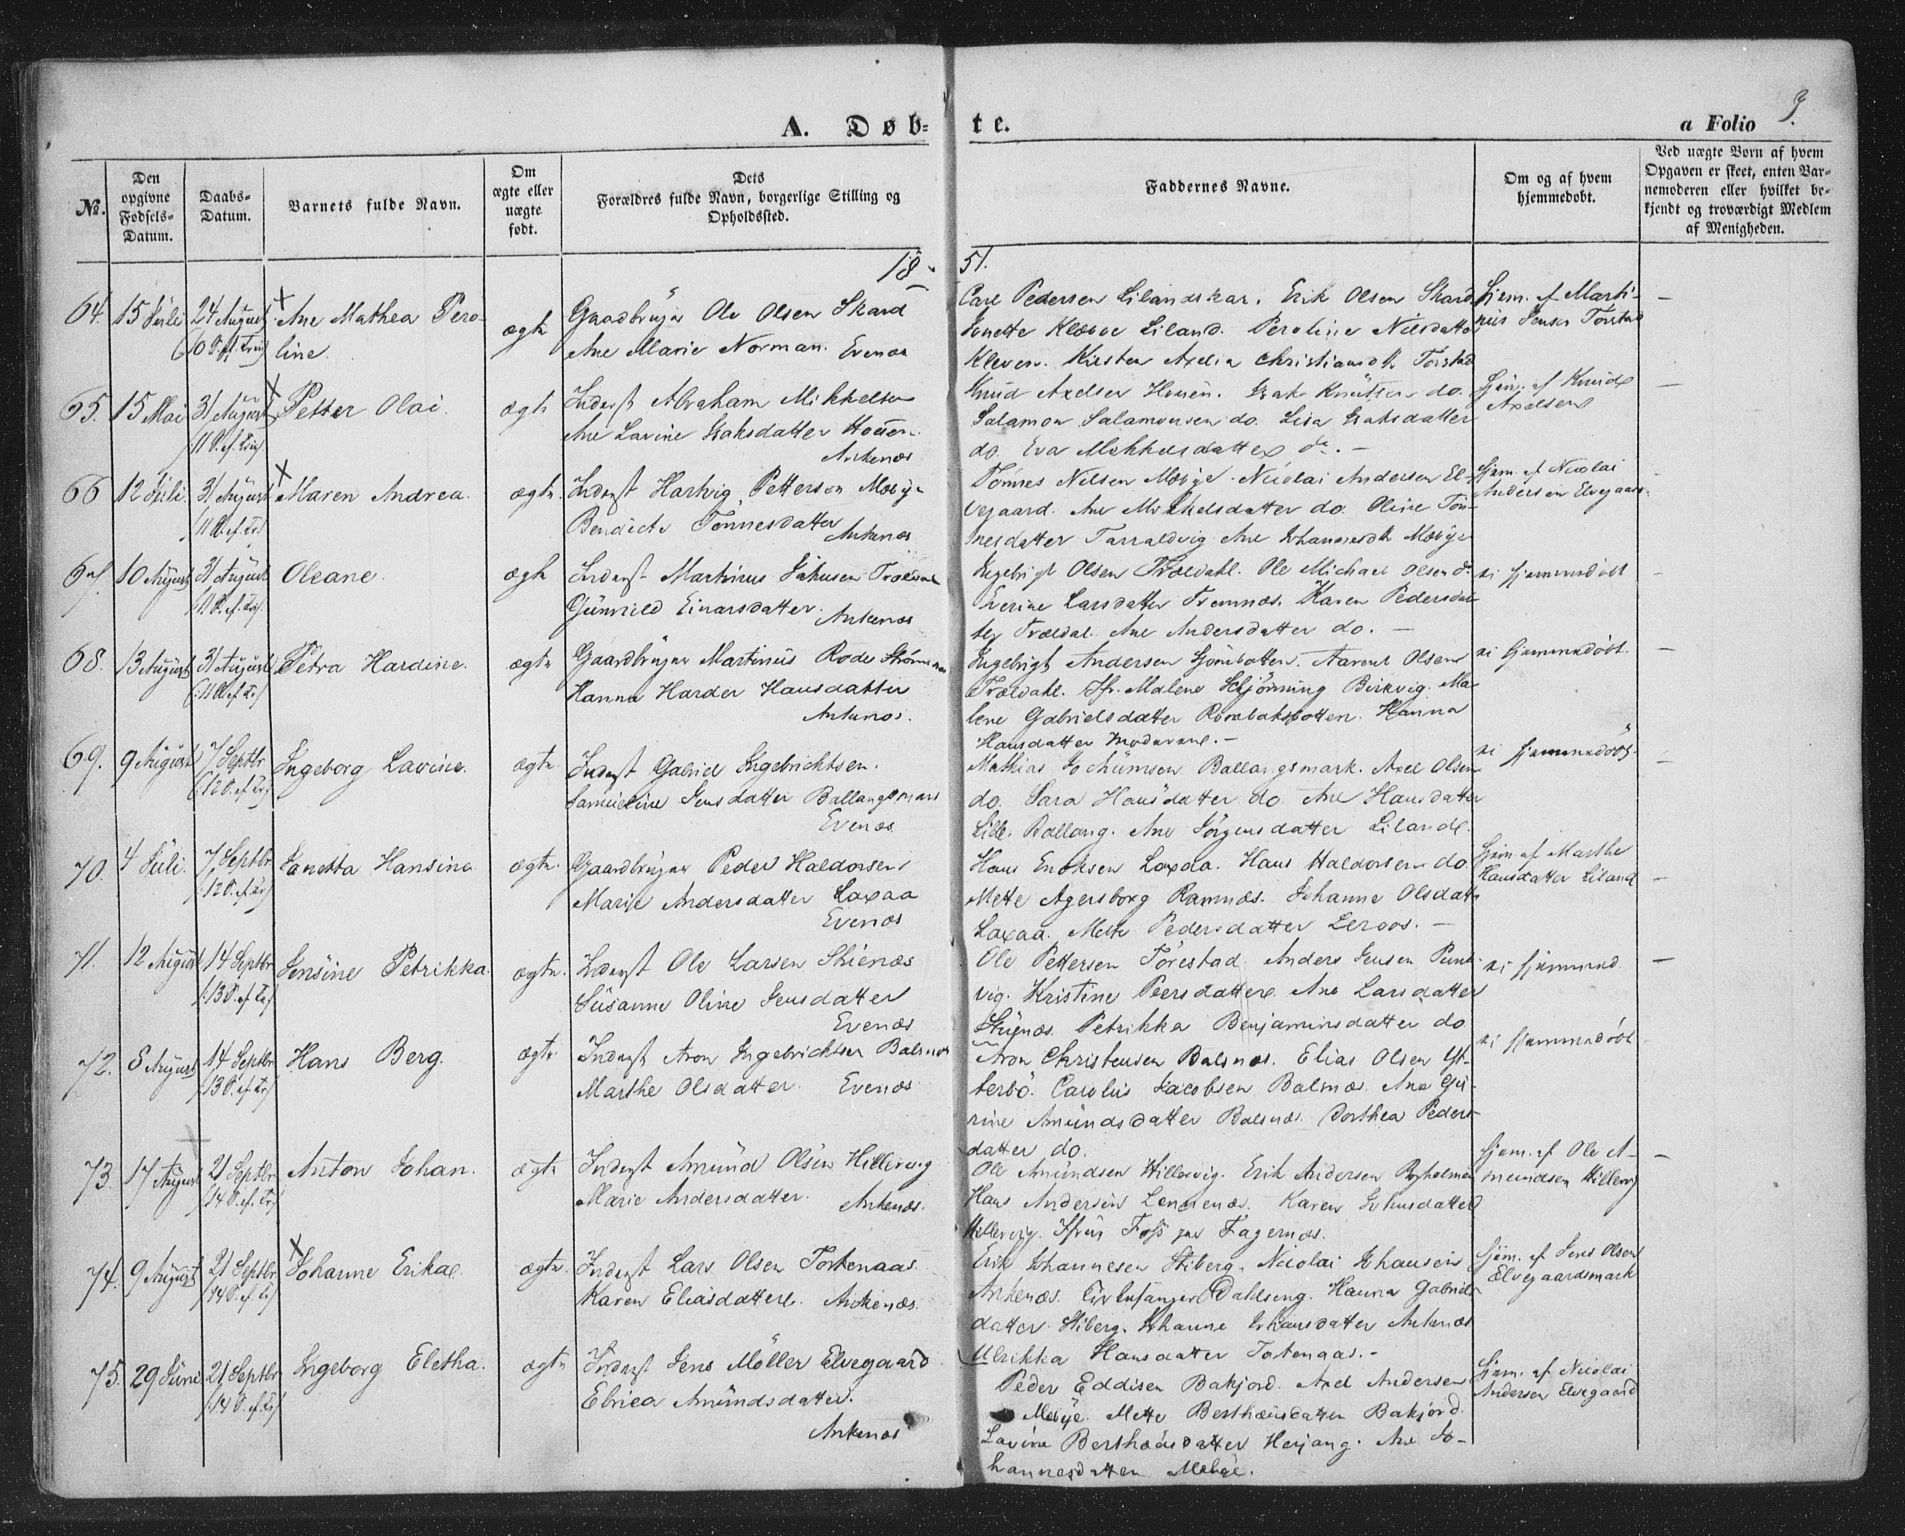 A. Døb=
te.
a Folio 9.
№.
Den opgivne Fødsels-Datum.
Daabs-Datum.
Barnets fulde Navn.
Om ægte eller uægte født.
Dets Forældres fulde Navn, borgerlige Stilling og Opholdssted.
Faddernes Navne.
Om og af hvem hjemmedøbt.
Ved uægte Børn af hvem Opgaven er skeet, enten Barnemoderen eller hvilket bekjendt og troværdigt Medlem af Menigheden.
18
51.
64. 15 Juli 24 August Ane Mathea Pero-
line.
ægte
Gaardbruger Ole Olsen Skard
Ane Marie Norman. Evenæs
Carl Pedersen Lilandskar. Erik Olsen Skard
Jonette Klæboe Liland. Peroline Nilsdatter
Kleven. Kirsten Axelia Christiansdtr Torstad
Hjem. af Marti-
nus Jensen Torstad
65. 15 Mai 31 August Petter Olai.
ægte
Inderst Abraham Mikkelsen
Ane Lavine Isaksdatter
Ankenæs
Knud Axelsen Isak Knutsen do.
Salamon Salamonsen do. Lisa Isaksdatter
do. Eva Mikkelsdatter do. -
Hjem. af Knud
Axelsen
66 12 Juli 31 August Maren Andrea.
ægte
Inderst Hartvig Petterson Møbye
Bendicte Tønnesdatter
Ankenæs
Tønnes Nilsen Møbye. Nicolai Andersen El-
vegaard. Ane Mikkelsdatter do. Oline Tøn-
nesdatter Tarraldvig. Ane Johannesdtr Møbye
Hjem. af Nicolai
Andersen Elvegaard
67. 10 August 31 August Oleane.
ægte
Inderst Martinus Trældal
Gunnild Einarsdatter.
Ankenæs
Ingebrigt Olsen Trældahl. Ole Michael Olsen do
Everine Larsdatter Karen Pedersdat-
ter Trældal. Ane Andersdatter do. -
ei hjemmedøbt
68. 13 August 31 August Petra Hardine.
ægte
Gaardbruger Martinus Rode
Hanna Harder Hansdatter
Ankenæs.
Ingebrigt Andersen Aarent Olsen
Trældahl. Jfr. Malene Hjørning Berkvig. Ma-
lene Gabrielsdatter Rombaksbotten. Hanna
Hansdatter Moderene. -
ei hjemmedøbt.
69. 9 August 7 Septbr Ingeborg Lavine.
ægte
Inderst Gabriel Ingebrichtsen.
Jensdatter Ballangsmark
Evenæs
Mathias Jochumsen Ballangsmark. Axel Olsen
do. Sara Hansdatter do. Ane Hansdatter
Lille. Ballang. Ane Jørgensdatter Liland.
ei hjemmedøbt
70. 4 Juli. 7 Septbr Janetta Hansine.
ægte.
Gaardbruger Peder Haldorsen
Marie Andersdatter Laxaa
Evenæs
Hans Enoksen Laxaa. Hans Haldorsen do
Mette Agersborg Ramnæs. Johanne Olsdatter
Laxaa. Mette Pedersdatter Leroos. -
Hjem. af Marthe
Hansdatter Liland
71. 12 August 14 Septbr Jensine Petrikka.
ægte.
Inderst Ole Larsen Skienæs
Susanne Oline Jensdatter
Evenæs
Ole Pettersen Tørestad. Anders Jensen
vig. Kristine Peersdatter. Ane Larsdatter
Petrikka Benjaminsdatter do
ei hjemmed
72. 8 August 14 Septbr Hans Berg.
ægte
Inderst Aron Ingebrichtsen Balsnes
Marthe Olsdatter. Evenæs
Aron Christensen Balsnæs. Elias Olsen Øst-
terbø. Carolus Jacobsen Balsnæs. Ane Gu-
rine Amundsdatter Balsnæs. Dorthea Peders-
datter do.
ei hjemmedøbt
73. 17 August 21 Septbr Anton Johan.
ægte
Inderst Amund Olsen Hillervig
Marie Andersdatter. Ankenæs.
Ole Amundsen Hillervig. Erik Andersen
Hans Andersen Lennenæs. Karen Johnsdatter
Hillervig. Jfrue Foss Fagernæs.
Hjem. af Ole A-
mundsen Hillervig
74. 9 August 21 Septbr Johanne Erika.
ægte.
Inderst Lars Olsen Tortenaas.
Karen Eliasdatter. Ankenæs.
Erik Johannesen Stiberg. Nicolai Johansen
Ankenæs. Kirkesanger Dahlseng. Hanna Gabriels-
datter Stiberg. Johanne Johansdatter Ankenæs
Ulrikka Hansdatter Tortenaas. -
Hjem. af Jens Olsen
Elvegaardsmark
75. 29 Juni 21 Septbr Ingeborg Eletha.
ægte
Inderst Jens Møller Elvegaard
Elrica Amundsdatter.
Ankenæs
Peder Eddisen Bakjord. Axel Andersen
Møbye. Mette Berthæusdatter Bakjord.
Lavina Berthæusdatter Herjang. Ane Jo-
hannesdatter Møbye.
Hjem. af Nicolai
Andersen Elvegaard